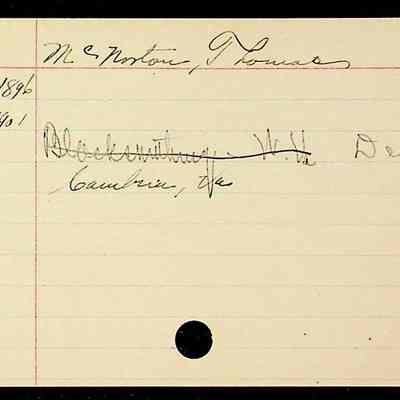 McNorton, Thomas
1896
1901
Blacksmithing. W.H. De
Cambria, Va